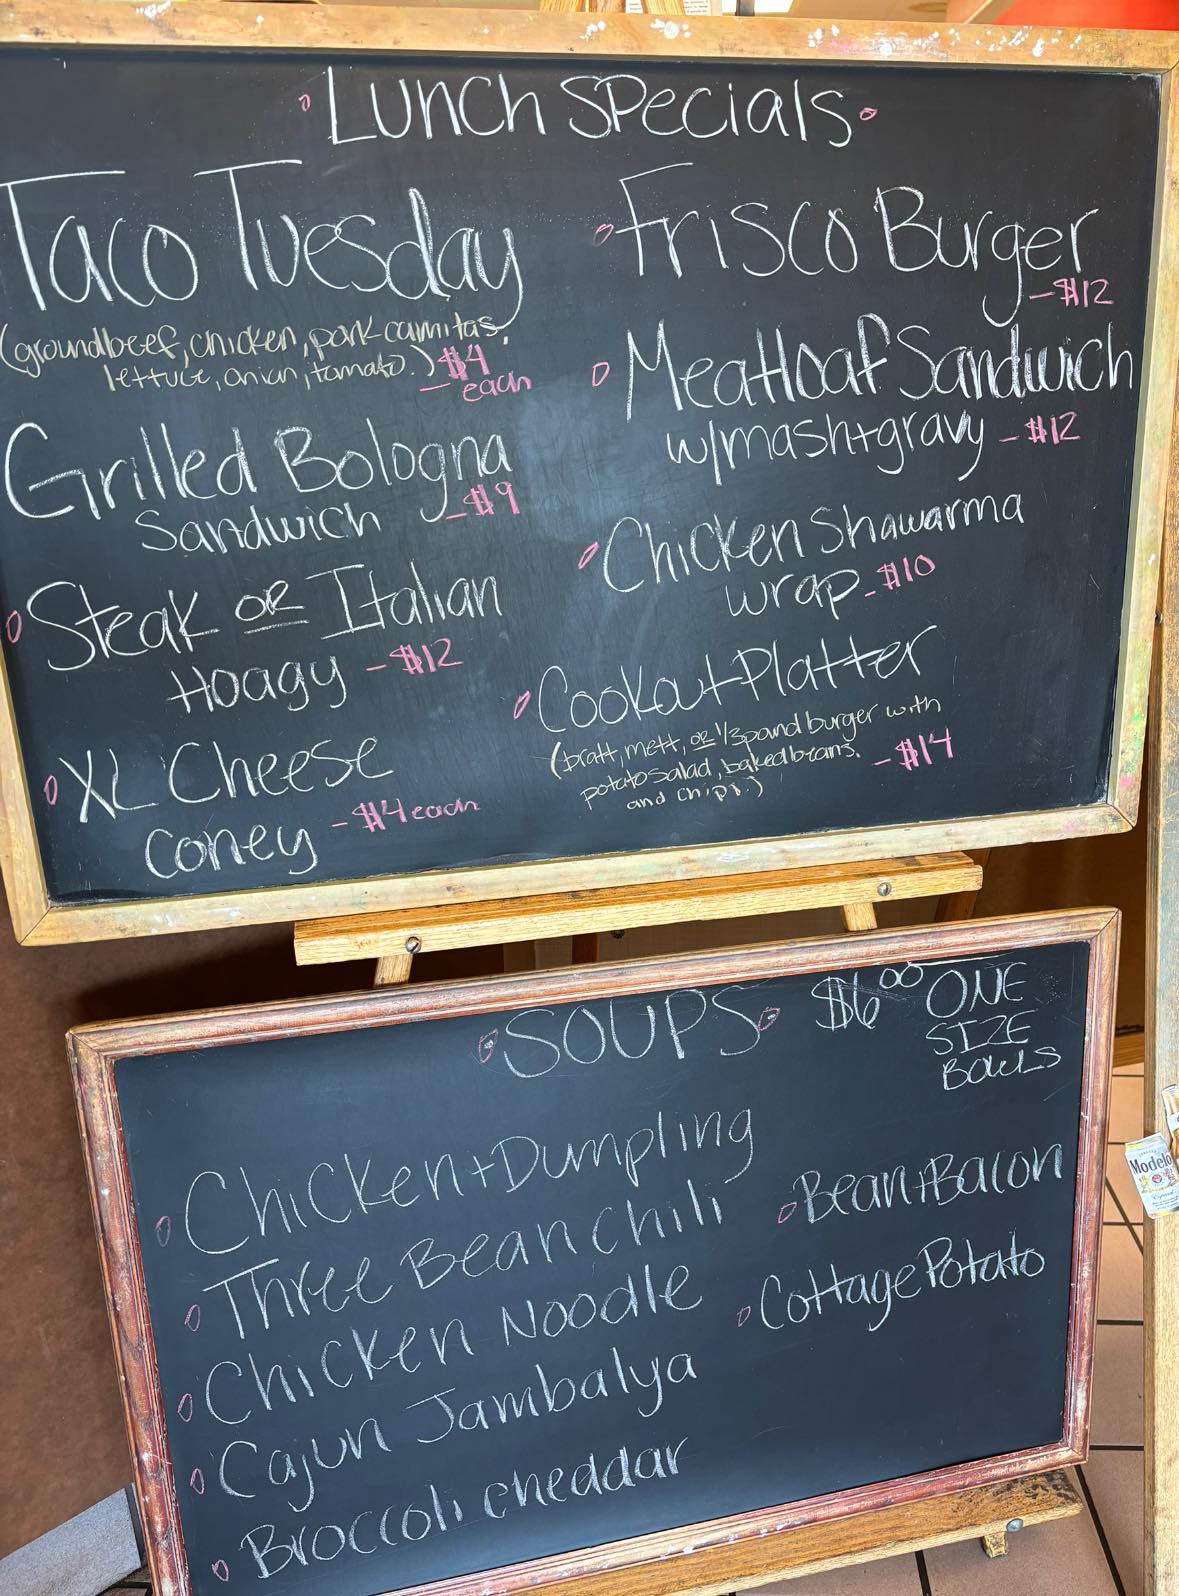 Lunch Specials
Taco Tuesday
(ground beef, chicken, pork carnitas,
lettuce, onion, tomato.) - $4
each
Grilled Bologna
Sandwich - $9
Steak or Italian
Hoagy - $12
XL Cheese
Coney - $4 each
Frisco Burger
- $12
Meatloaf Sandwich
w/mash+gravy - $12
Chicken Shawarma
wrap - $10
Cookout Platter
(bratt, mett, or 1/3 pound burger with
potato salad, baked beans,
and chips.) - $14
SOUPS
$6.00 ONE
SIZE
BOWLS
Chicken+Dumpling
Three Bean Chili
Chicken Noodle
Cajun Jambalya
Broccoli cheddar
Bean+Bacon
Cottage Potato
Modelo
Especial